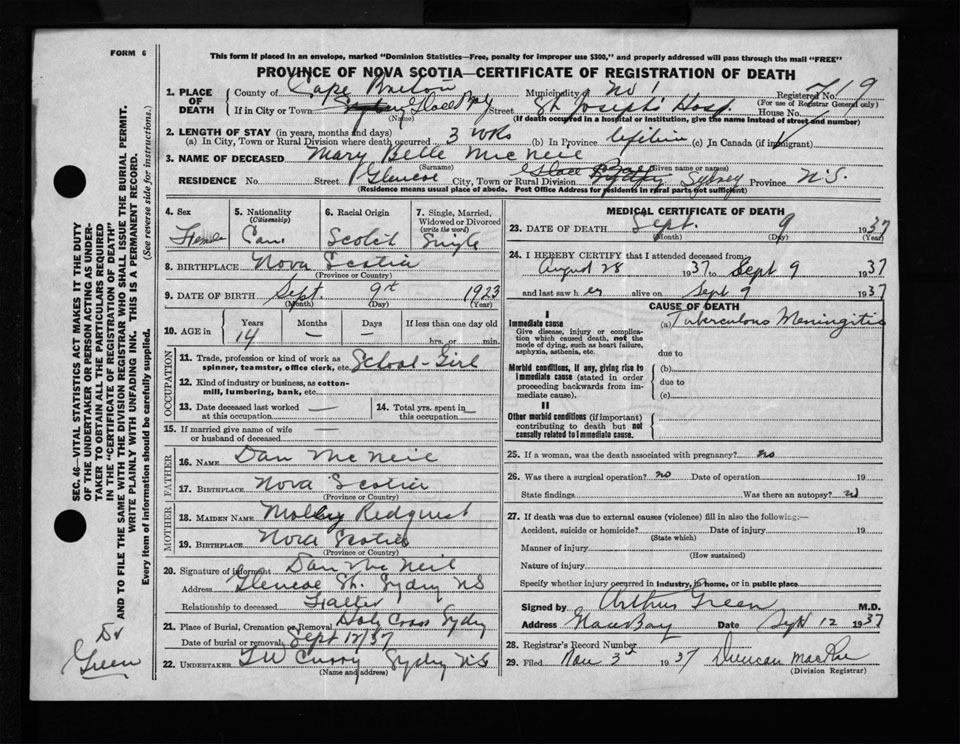 FORM 6
This form if placed in an envelope, marked "Dominion Statistics—Free, penalty for improper use $300," and properly addressed will pass through the mail "FREE"
PROVINCE OF NOVA SCOTIA—CERTIFICATE OF REGISTRATION OF DEATH
1. PLACE OF DEATH County of Cape Breton Municipality No 1 Registered No. 719
(For use of Registrar General only)
If in City or Town Sydney Glace Bay Street St. Joseph's Hosp. House No.
(Name) (If death occurred in a hospital or institution, give the name instead of street and number)
2. LENGTH OF STAY (in years, months and days)
(a) In City, Town or Rural Division where death occurred 3 wks (b) In Province Lifetime (c) In Canada (if immigrant)
3. NAME OF DECEASED Mary Belle McNeil
(Surname) (Given name or names)
RESIDENCE No. Street Glencoe City, Town or Rural Division Glace Bay Sydney Province N.S.
(Residence means usual place of abode. Post Office Address for residents in rural parts not sufficient)
4. Sex Female
5. Nationality (Citizenship) Can
6. Racial Origin Scotch
7. Single, Married, Widowed or Divorced (write the word) Single
8. BIRTHPLACE Nova Scotia
(Province or Country)
9. DATE OF BIRTH Sept. 9th 1923
(Month) (Day) (Year)
10. AGE in Years 14 Months — Days — If less than one day old hrs. or min.
OCCUPATION
11. Trade, profession or kind of work as spinner, teamster, office clerk, etc. School-Girl
12. Kind of industry or business, as cotton-mill, lumbering, bank, etc.
13. Date deceased last worked at this occupation —
14. Total yrs. spent in this occupation —
15. If married give name of wife or husband of deceased —
FATHER
16. NAME Dan McNeil
17. BIRTHPLACE Nova Scotia
(Province or Country)
MOTHER
18. MAIDEN NAME Molley Redquest
19. BIRTHPLACE Nova Scotia
(Province or Country)
20. Signature of informant Dan McNeil
Address Glencoe St. Sydney NS
Relationship to deceased Father
21. Place of Burial, Cremation or Removal Holy Cross Sydney
Date of burial or removal Sept 12/37
22. UNDERTAKER T W Curry Sydney NS
(Name and address)
MEDICAL CERTIFICATE OF DEATH
23. DATE OF DEATH Sept. 9 1937
(Month) (Day) (Year)
24. I HEREBY CERTIFY that I attended deceased from
August 28 1937 to Sept 9 1937
and last saw her alive on Sept 9 1937
CAUSE OF DEATH
I
Immediate cause (a) Tuberculous Meningitis
Give disease, injury or complication which caused death, not the mode of dying, such as heart failure, asphyxia, asthenia, etc.
due to
Morbid conditions, if any, giving rise to immediate cause (stated in order proceeding backwards from immediate cause).
(b)
due to
(c)
II
Other morbid conditions (if important) contributing to death but not causally related to immediate cause.
25. If a woman, was the death associated with pregnancy? no
26. Was there a surgical operation? no Date of operation 19
State findings Was there an autopsy? no
27. If death was due to external causes (violence) fill in also the following:—
Accident, suicide or homicide? Date of injury 19
(State which)
Manner of injury
(How sustained)
Nature of injury
Specify whether injury occurred in industry, in home, or in public place
Signed by Arthur Green M.D.
Address Glace Bay Date Sept 12 1937
28. Registrar's Record Number
29. Filed Nov 3rd 1937 Duncan MacRae
(Division Registrar)
SEC. 46—VITAL STATISTICS ACT MAKES IT THE DUTY
OF THE UNDERTAKER OR PERSON ACTING AS UNDER-
TAKER TO OBTAIN ALL THE PARTICULARS REQUIRED
IN THE "CERTIFICATE OF REGISTRATION OF DEATH"
AND TO FILE THE SAME WITH THE DIVISION REGISTRAR WHO SHALL ISSUE THE BURIAL PERMIT.
WRITE PLAINLY WITH UNFADING INK. THIS IS A PERMANENT RECORD.
Every item of information should be carefully supplied. (See reverse side for instructions.)
Dr
Green